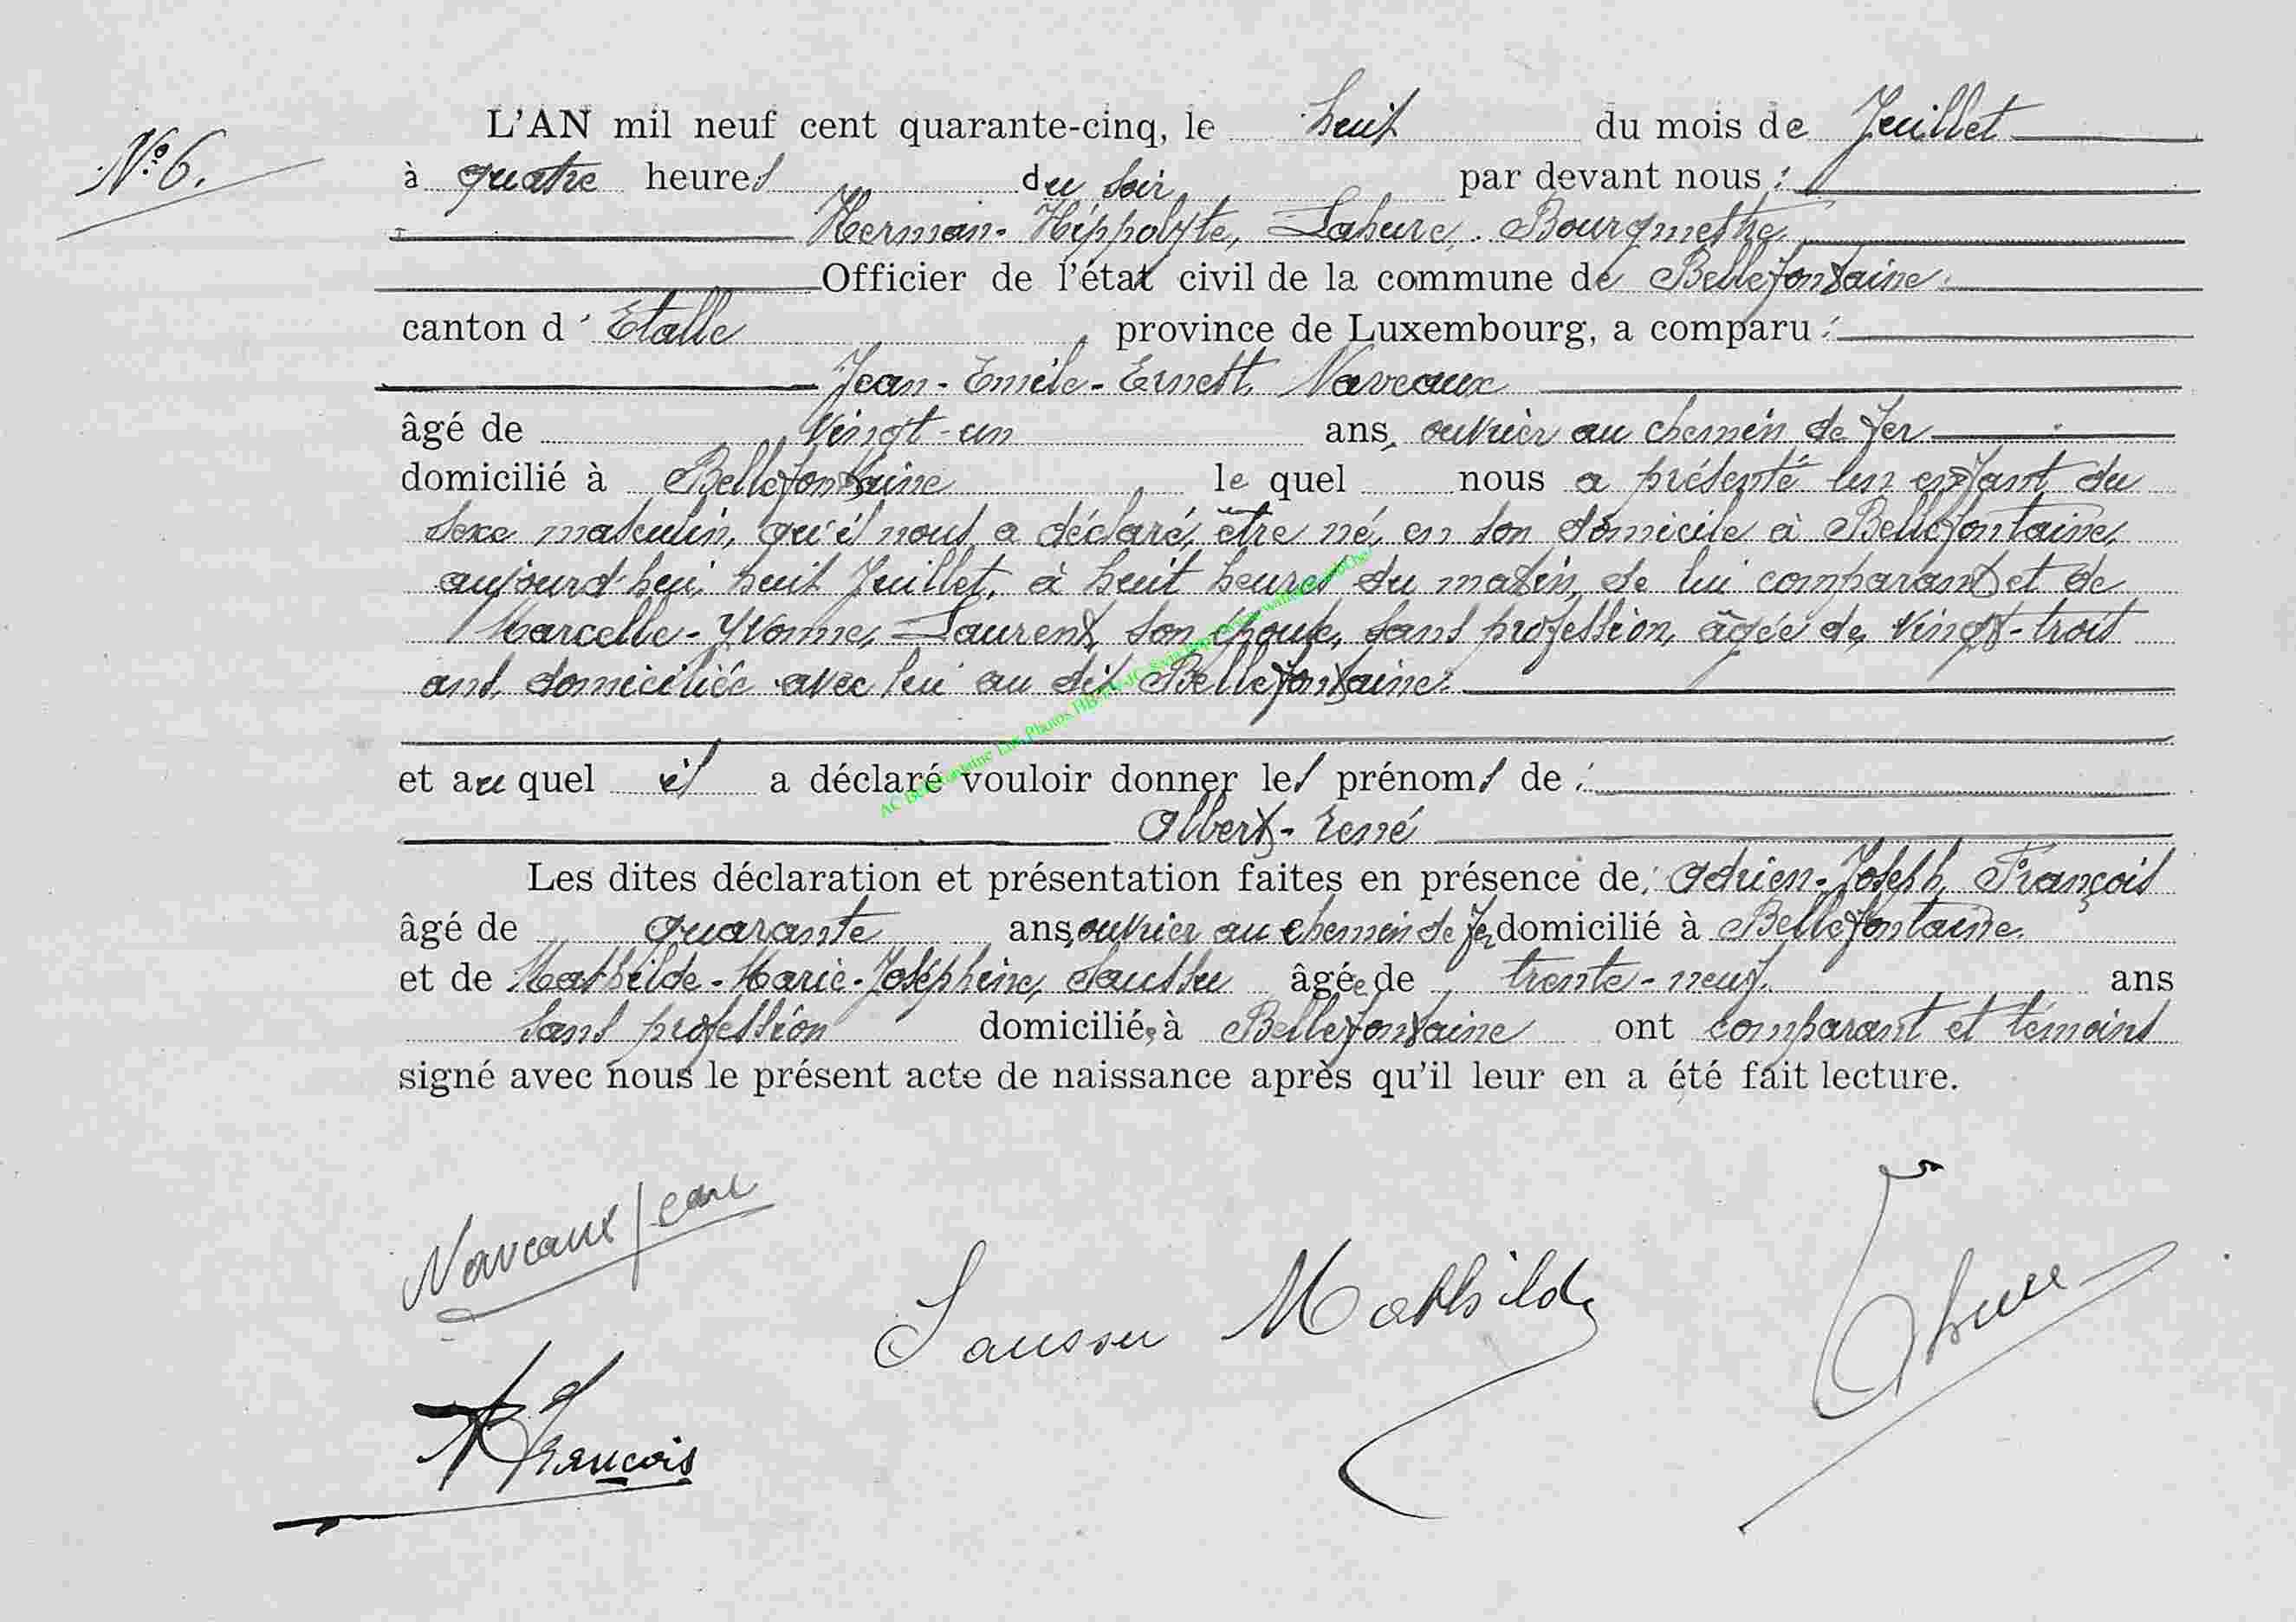 N° 6.
L'AN mil neuf cent quarante-cinq, le huit du mois de Juillet
à quatre heures du soir par devant nous :
Herman-Hippolyte, Lahure, Bourgmestre,
Officier de l'état civil de la commune de Bellefontaine
canton d'Etalle province de Luxembourg, a comparu :
Jean-Emile-Ernest, Naveaux
âgé de vingt-un ans, ouvrier au chemin de fer
domicilié à Bellefontaine le quel nous a présenté un enfant du
sexe masculin, qu'il nous a déclaré, être né, en son domicile à Bellefontaine,
aujourd'hui huit Juillet, à huit heures du matin, de lui comparant et de
Marcelle-Yvonne, Laurent, son épouse, sans profession, âgée de vingt-trois
ans, domiciliée avec lui au dit Bellefontaine.
et au quel il a déclaré vouloir donner les prénoms de :
Albert-René
Les dites déclaration et présentation faites en présence de : Adrien-Joseph, François
âgé de quarante ans, ouvrier au chemin de fer domicilié à Bellefontaine.
et de Mathilde-Marie-Joséphine, Saussu âgée de trente-neuf ans
sans profession domiciliée à Bellefontaine ont comparant et témoins
signé avec nous le présent acte de naissance après qu'il leur en a été fait lecture.
Naveaux Jean
Saussu Mathilde
Lahure
A François